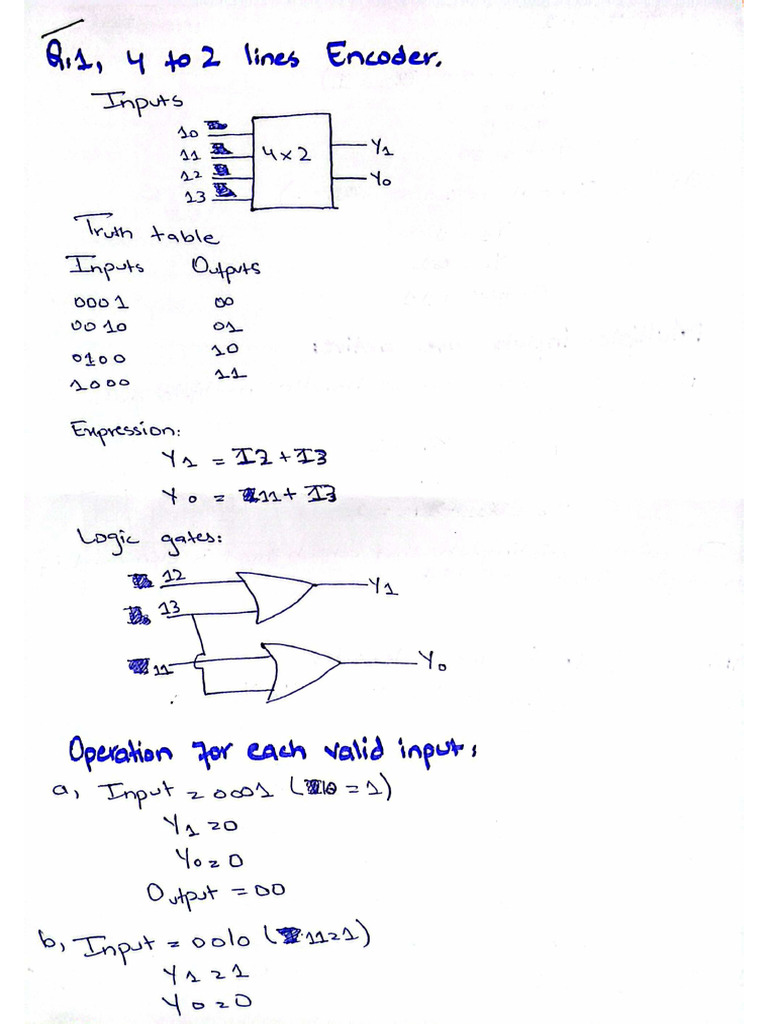 Q.1, 4 to 2 lines Encoder.
Inputs
10
11
12
13
4x2
Y1
Y0
Truth table
Inputs Outputs
0001 00
0010 01
0100 10
1000 11
Expression:
Y1 = I2 + I3
Y0 = 11 + I3
Logic gates:
12
13
11
Y1
Y0
Operation for each valid input:
a, Input = 0001 (10 = 1)
Y1=0
Y0=0
Output = 00
b, Input = 0010 (11=1)
Y1=1
Y0=0